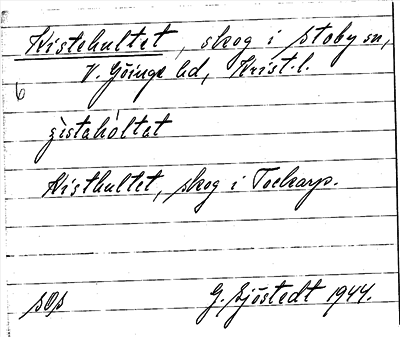 Kistehultet, skog i Stoby sn,
V. Göinge hd, Krist. l.
6
Kisthultet, skog i Tockarp.
sOs G. Sjöstedt 1944.